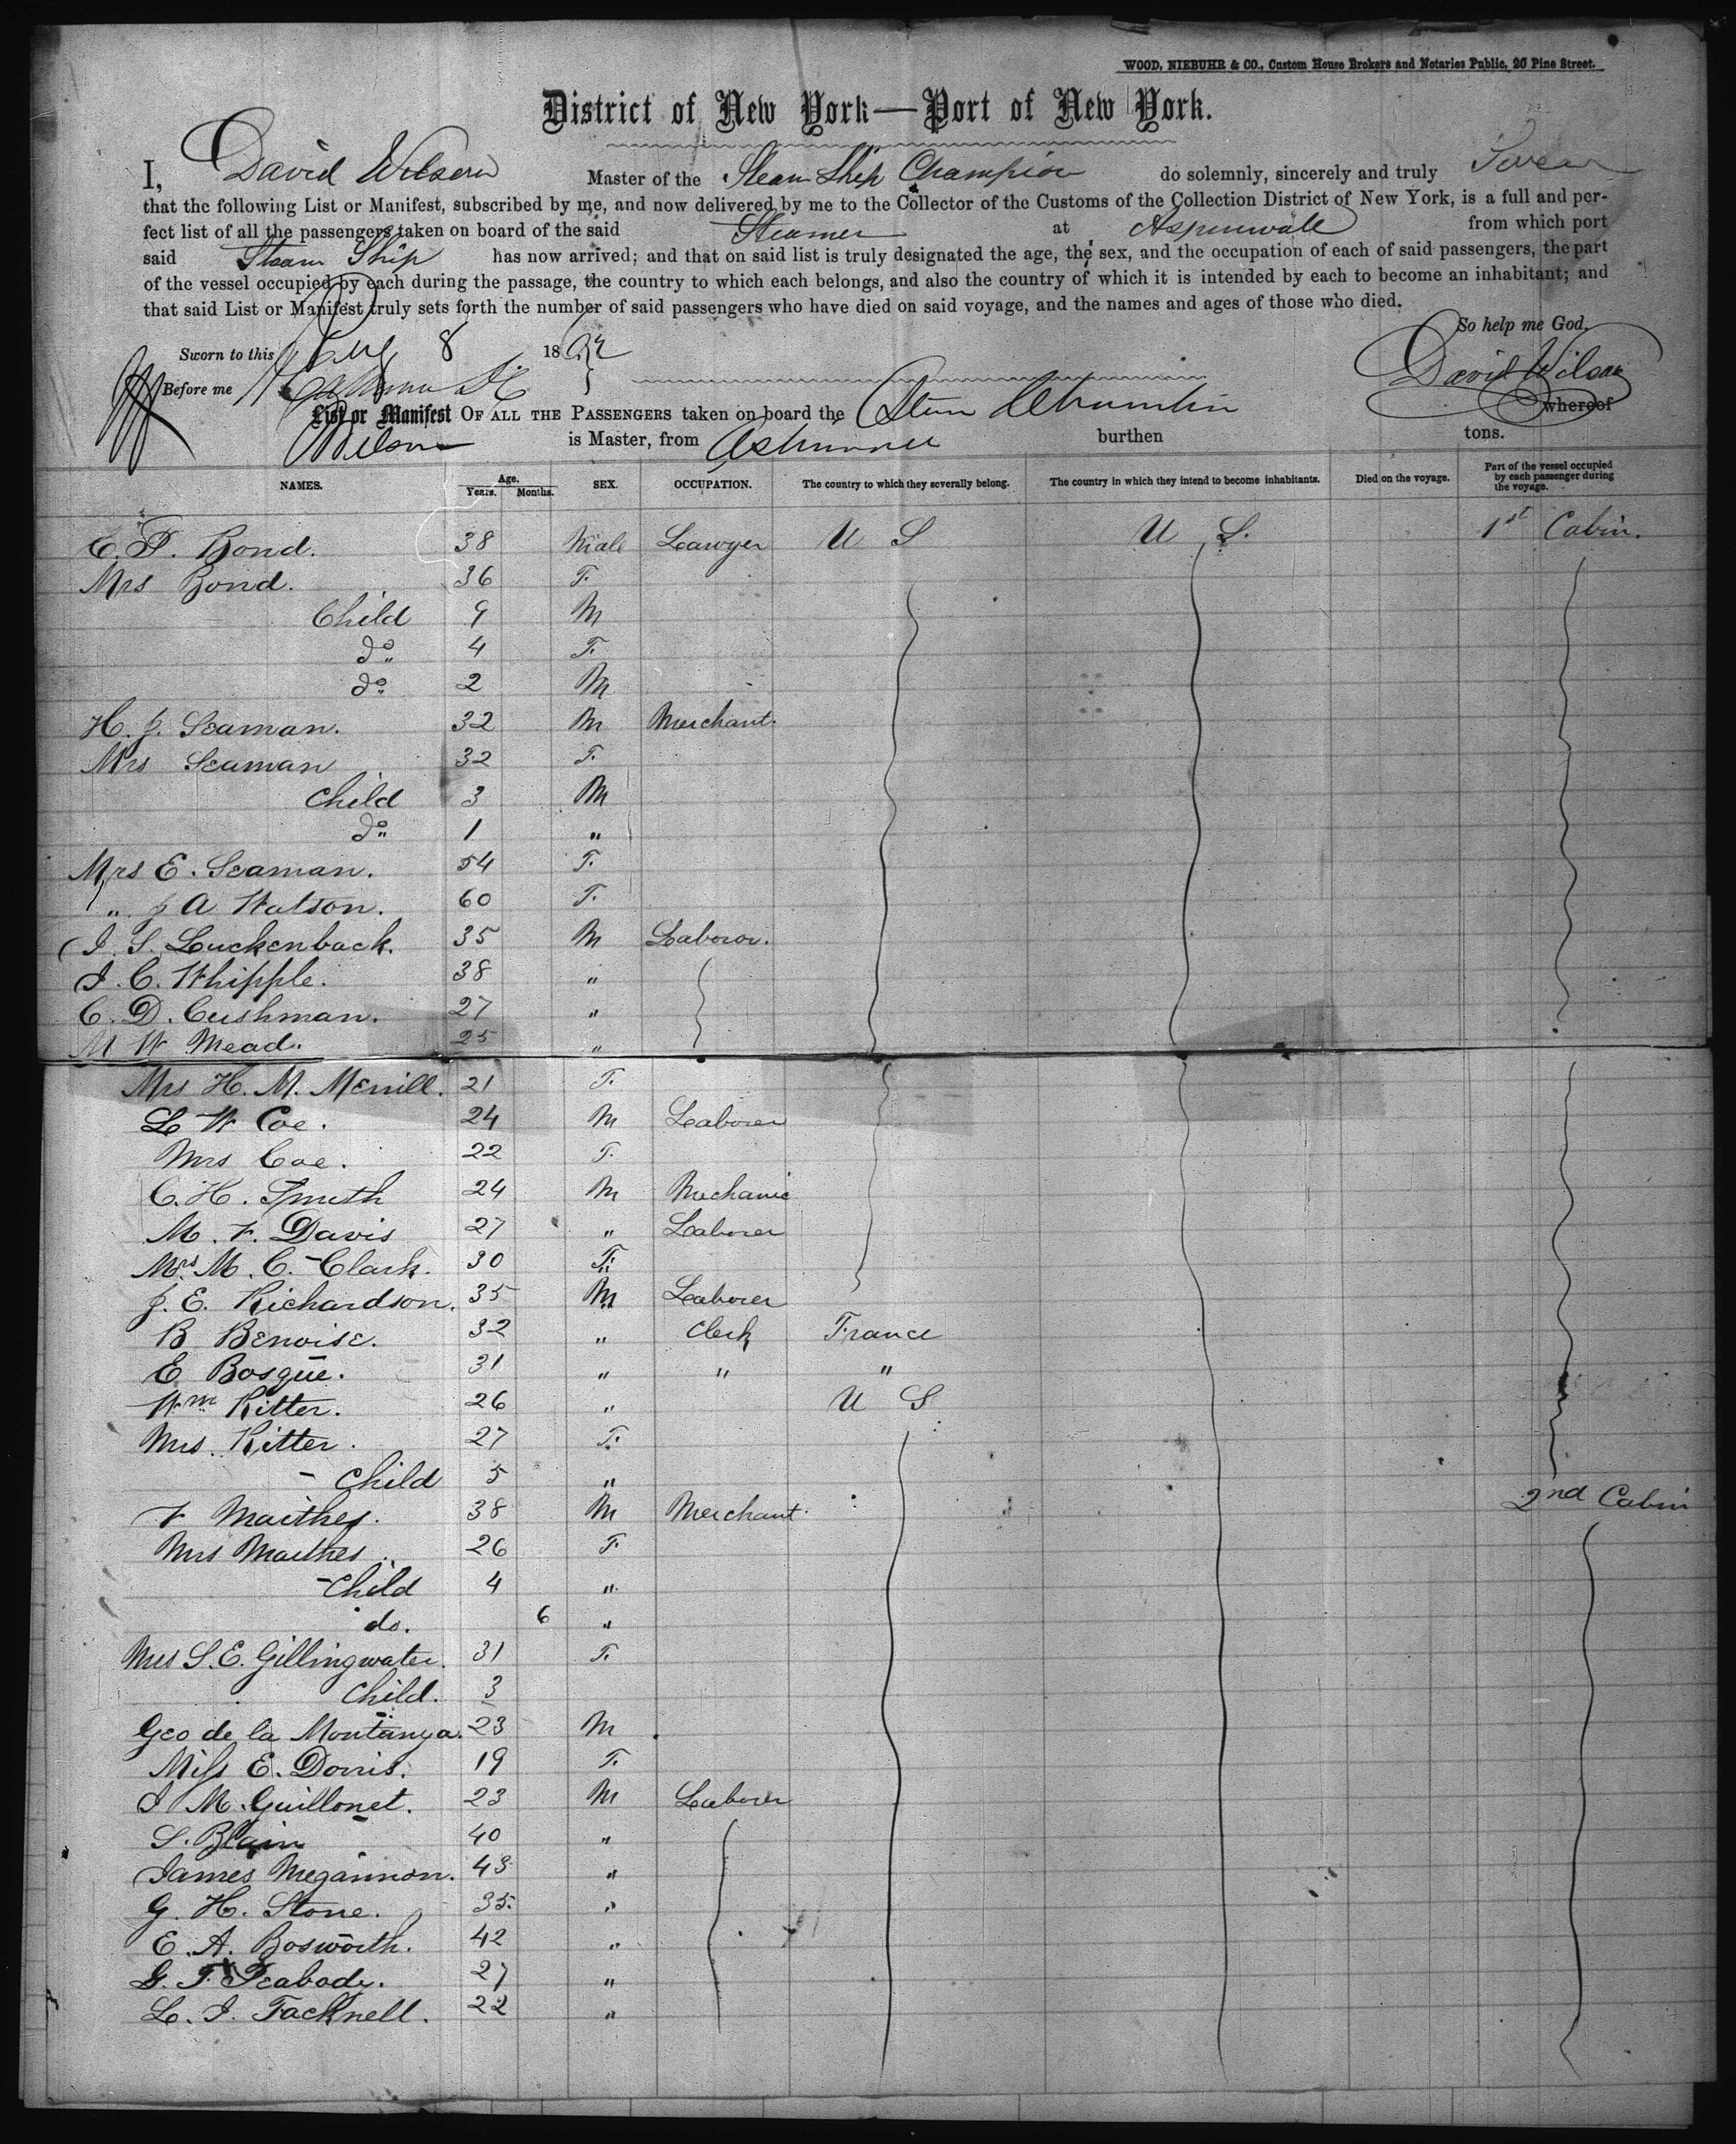 WOOD, NIEBUHR & CO., Custom House Brokers and Notaries Public, 26 Pine Street.
District of New York—Port of New York.
I, David Wilson Master of the Steam Ship Champion do solemnly, sincerely and truly Swear
that the following List or Manifest, subscribed by me, and now delivered by me to the Collector of the Customs of the Collection District of New York, is a full and per-
fect list of all the passengers taken on board of the said Steamer at Aspinwall from which port
said Steam Ship has now arrived; and that on said list is truly designated the age, the sex, and the occupation of each of said passengers, the part
of the vessel occupied by each during the passage, the country to which each belongs, and also the country of which it is intended by each to become an inhabitant; and
that said List or Manifest truly sets forth the number of said passengers who have died on said voyage, and the names and ages of those who died.
So help me God.
Sworn to this 8 18
Before me
David Wilson
List or Manifest OF ALL THE PASSENGERS taken on board the Champion whereof
Wilson is Master, from burthen tons.
NAMES. Age. Years. Months. SEX. OCCUPATION. The country to which they severally belong. The country in which they intend to become inhabitants. Died on the voyage. Part of the vessel occupied by each passenger during the voyage.
E. F. Bond. 38 Male Lawyer U S U S. 1st Cabin.
Mrs Bond. 36 F.
Child 9 M
do. 4 F.
do. 2 M
H. J. Seaman. 32 M Merchant.
Mrs Seaman 32 F.
Child 3 M
do. 1 "
Mrs E. Seaman. 54 F.
" J A Watson. 60 F.
I. S. Luckenback. 35 M Laboror.
I. C. Whipple. 38 "
C. D. Cushman. 27 "
M W Mead. 25 "
Mrs H. M. Merrill. 21 F.
L W Coe. 24 M Laborer
Mrs Coe. 22 F.
C. H. Smith 24 M Mechanic
M. F. Davis 27 " Laborer
Mrs M. C. Clark. 30 F.
J. E. Richardson. 35 M Laborer
B Benoise. 32 " Clerk France
E Bosque. 31 " " "
Wm Ritter. 26 " U S
Mrs. Ritter. 27 F.
Child 5 "
F Maithes. 38 M Merchant. 2nd Cabin
Mrs Maithes. 26 F.
Child 4 "
do. 6 "
Mrs S. E. Gillingwater. 31 F.
Child. 3
Geo de la Montanya. 23 M
Miss E. Dorris. 19 F.
I M. Guillonet. 23 M Laborer
S. Blain 40 "
James Megannon. 43 "
G. H. Stone. 35. "
E. A. Bosworth. 42 "
G. F. Peabody. 27 "
L. I. Tacknell. 22 "